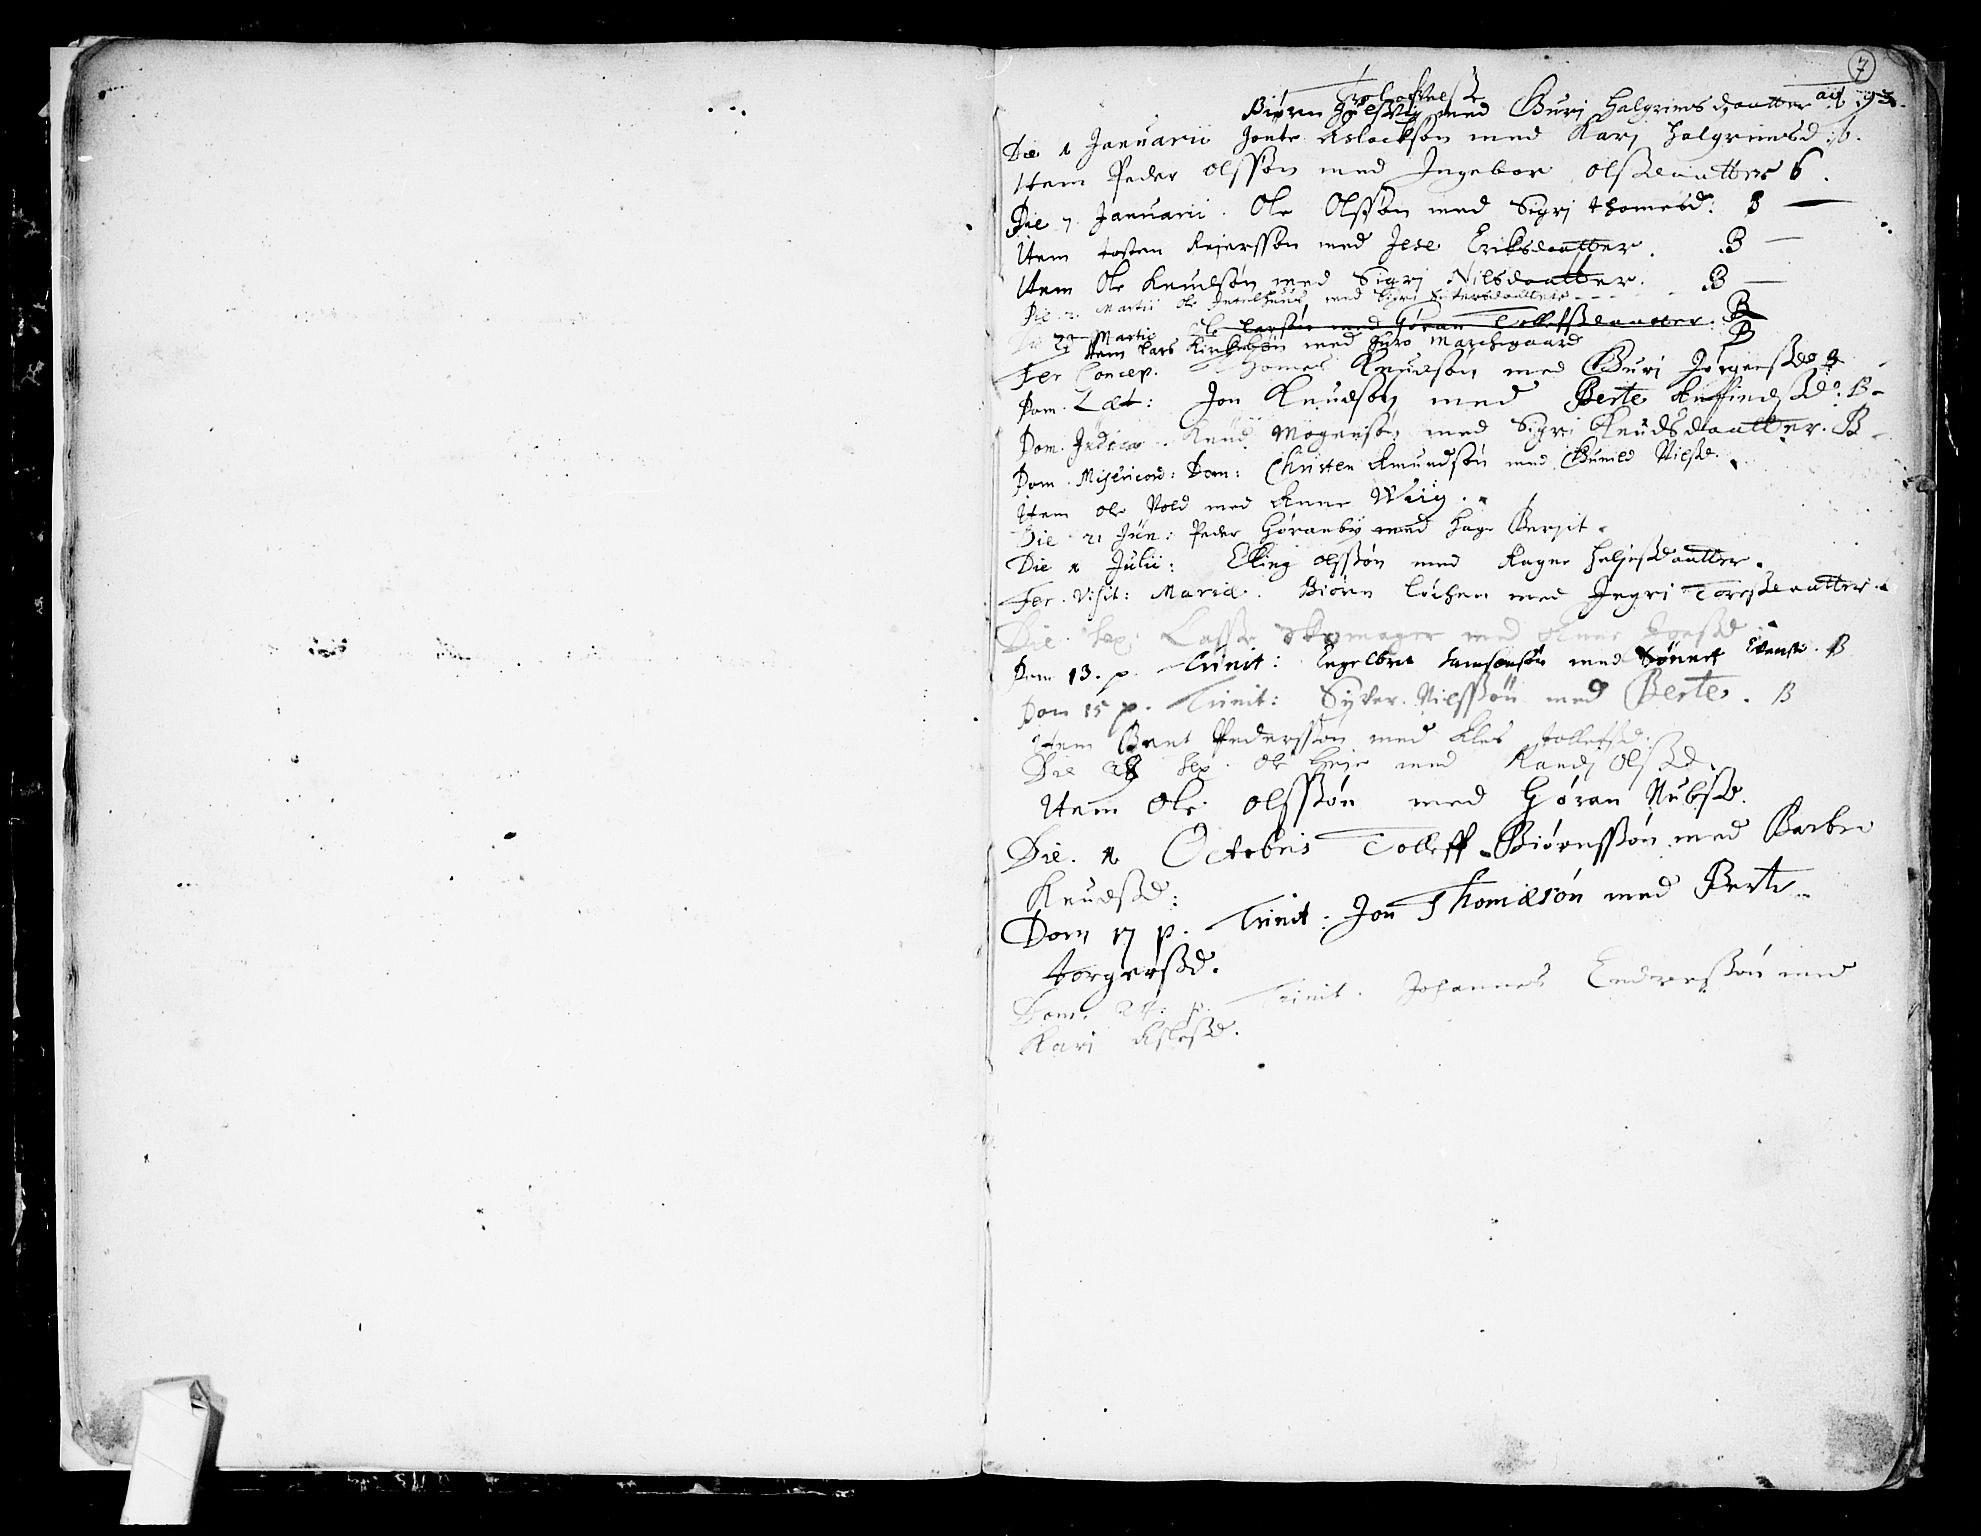 7
Trolofvelse
Biørn med Guri Halgrimsdaatter
Die 1 Januarii Jonte Aslackson med Kari Halgrimsd: b.
Item Peder Olssøn med Ingebor Olsdaatter 6.
Die 7 Januarii. Ole Olssøn med Sigri Thomesd: B
Item Tosten Reierssøn med Jese Eriksdaatter. B
Item Ole Knudsøn med Sigri Nilsdaatter. B
Die 2. Martii Ole med Sigri Petersdaatter
Martii Ole Larssøn med Gøran Tollefsdaatter. B
Item Lars med Guro Marchegaard B
Fer Concep. Thomes Knudsøn med Guri Jørgensd
Dom. Læt: Jon Knudsøn med Berte d: B
Dom. Judica. Knud Mogensøn med Sigri Knudsdaatter. B
Dom. Misericord: Dom: Christen Amundsøn med Gunild Nilsd.
Item Ole Vold med Anne Wiig.
Die 21 Jun: Peder Gøranby med Hage Bergit.
Die 1 Julii: Elling Olssøn med Ragne Heljesdaatter.
Fer. Visit: Mariæ. Biørn Løchen med Ingri Toresdaatter.
Die Sep: Lasse Skomager med Anne
Dom 13. p. Trinit: Engelbret Samsonsøn med Sønnet Evensd. B
Dom 15 p. Trinit: Syver Nilssøn med Berte. B
Item Bent Pederssøn med Tollefsd:
Die 28 Sep. Ole med Randj Olsd.
Item Ole Olssøn med Gøran Nubsd.
Die. 1 Octobris Tolleff Biørnssøn med Barbro
Knudsd:
Dom 17 p. Trinit: Jon Thomæsøn med Berte
Torgersd.
Dom. 24: p. Trinit. Johannes Endressøn med
Kari Aslesd.